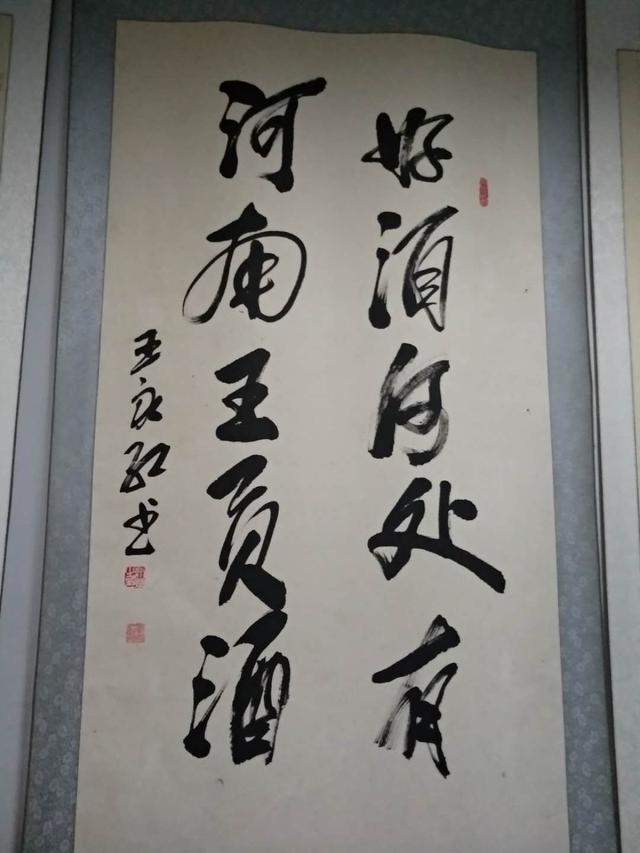 好酒何处有
河南王贡酒
王永红书